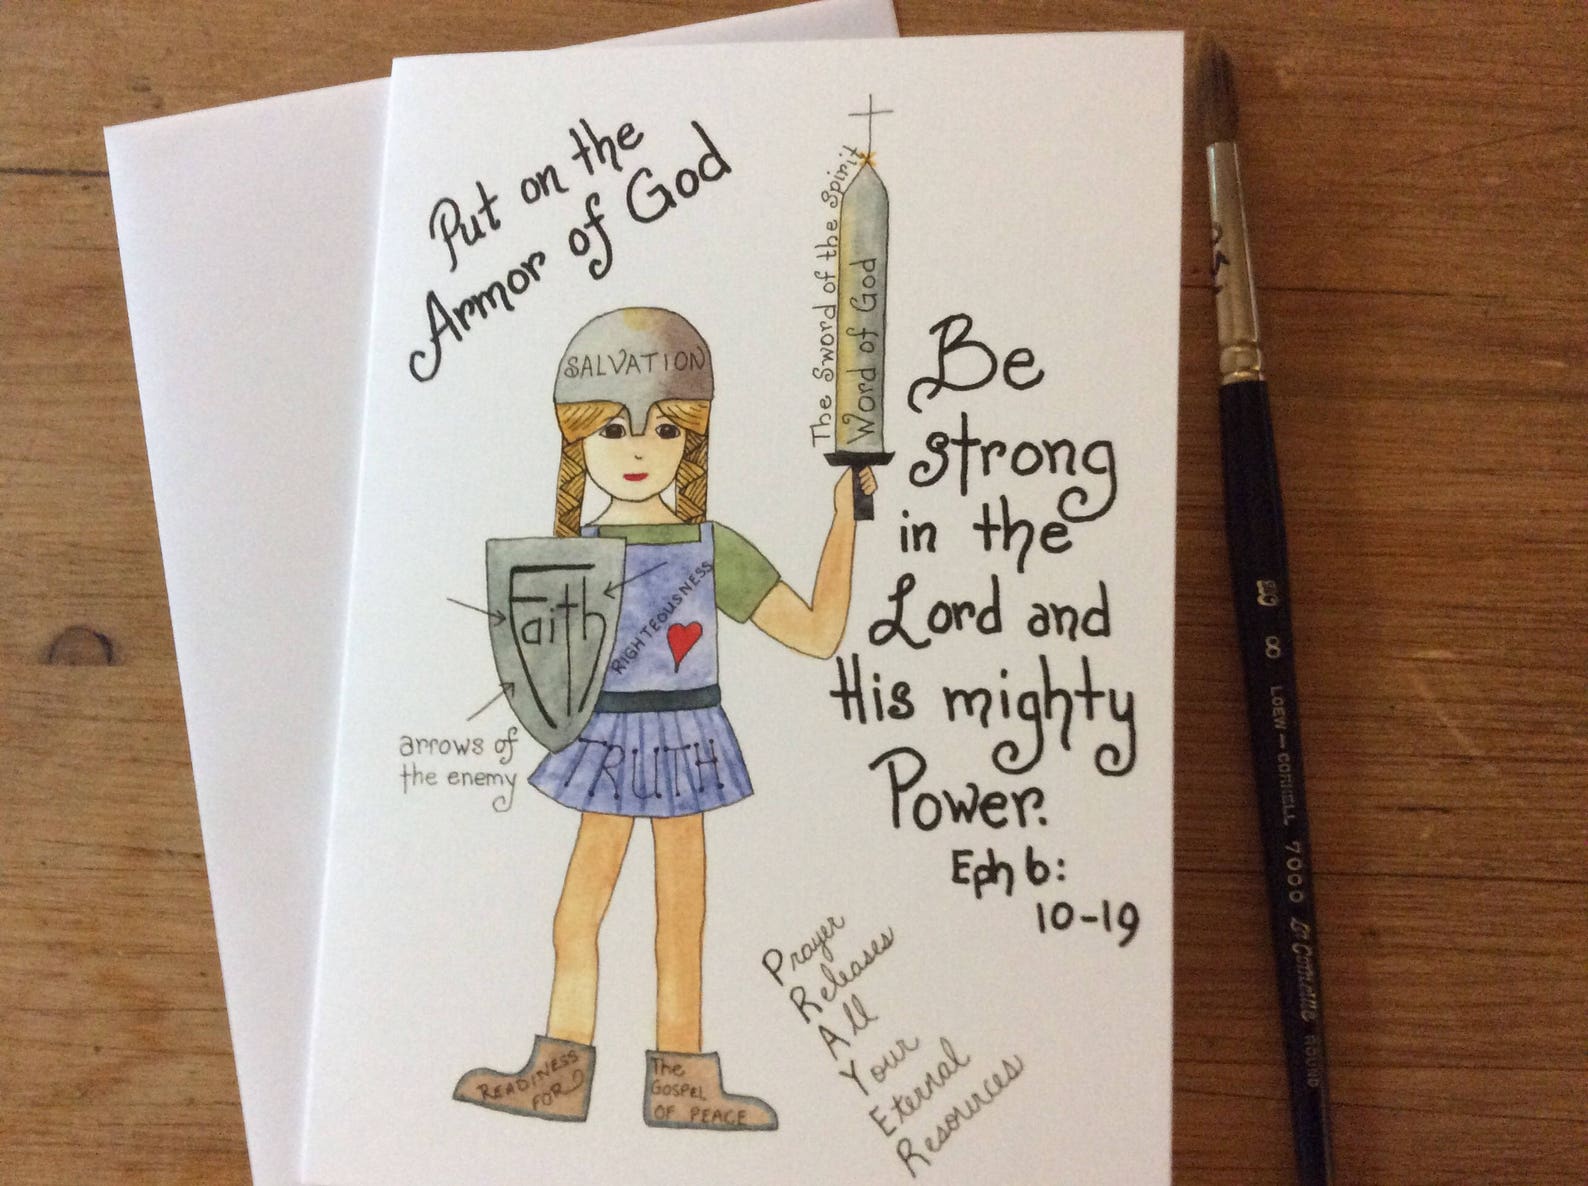 Put on the
Armor of God
The Sword of the Spirit
Word of God
SALVATION
Be
strong
in the
Lord and
His mighty
Power.
Eph 6:
10-19
Faith
RIGHTEOUSNESS
TRUTH
arrows of
the enemy
READINESS
FOR
The
GOSPEL
OF PEACE
Prayer
Releases
All
Your
Eternal
Resources
8 LOEW-CORNELL 7000 La Corneille ROUND